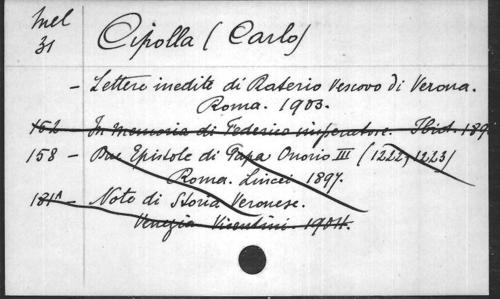 Mel
31
Cipolla (Carlo)
- Lettere inedite di Raterio Vescovo di Verona.
Roma. 1903.
152 - In memoria di Federico imperatore. Ibid. 189
158 - Due Epistole di Papa Onorio III (1222, 1223)
Roma. Lincei 1897.
181^ - Note di Storia Veronese.
Venezia Visentini. 1904.